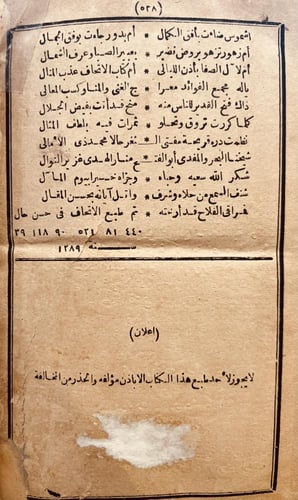 (٥٢٨)
اشموس ضاءت بأفق الكمال * أم بدور جاءت بوفق الجمال
أم زهور تزهو بروض نضير * بعبير الصبا وعرف الشمال
أم لآل الصفا بأذن الليالى * أم كتاب الاتحاف عذب المنال
بابه مجمع الفوائد معرا * ج الغنى والمنار كسب المعالى
ذاك فتح القدير للناس منه * منح قد أتت بفيض الجلال
كلما كررت تروق وتحلو * ثمرات فيه بلطف المثال
نظمت دره قريحة مفتى الـ * ثغر حالا محمدى الافعالى
شيخنا البحر والمفدى أبو الفتـ * ح منار الهدى غزير النوال
شكر الله سعيه وحباه * وجزاه خير ابيوم المآل
شنف السمع من حلاه وشرف * واتل آياته بحسن المقال
فراقى الفلاح قد أرخته * تم طبع الاتحاف فى حسن حال
٤٤٠ ٨١ ٥٢١ ٩٠ ١١٨ ٣٩
سنة ١٢٨٩
(اعلان)
لا يجوز لأحد طبع هذا الكتاب الا باذن مؤلفه والحذر من المخالفة